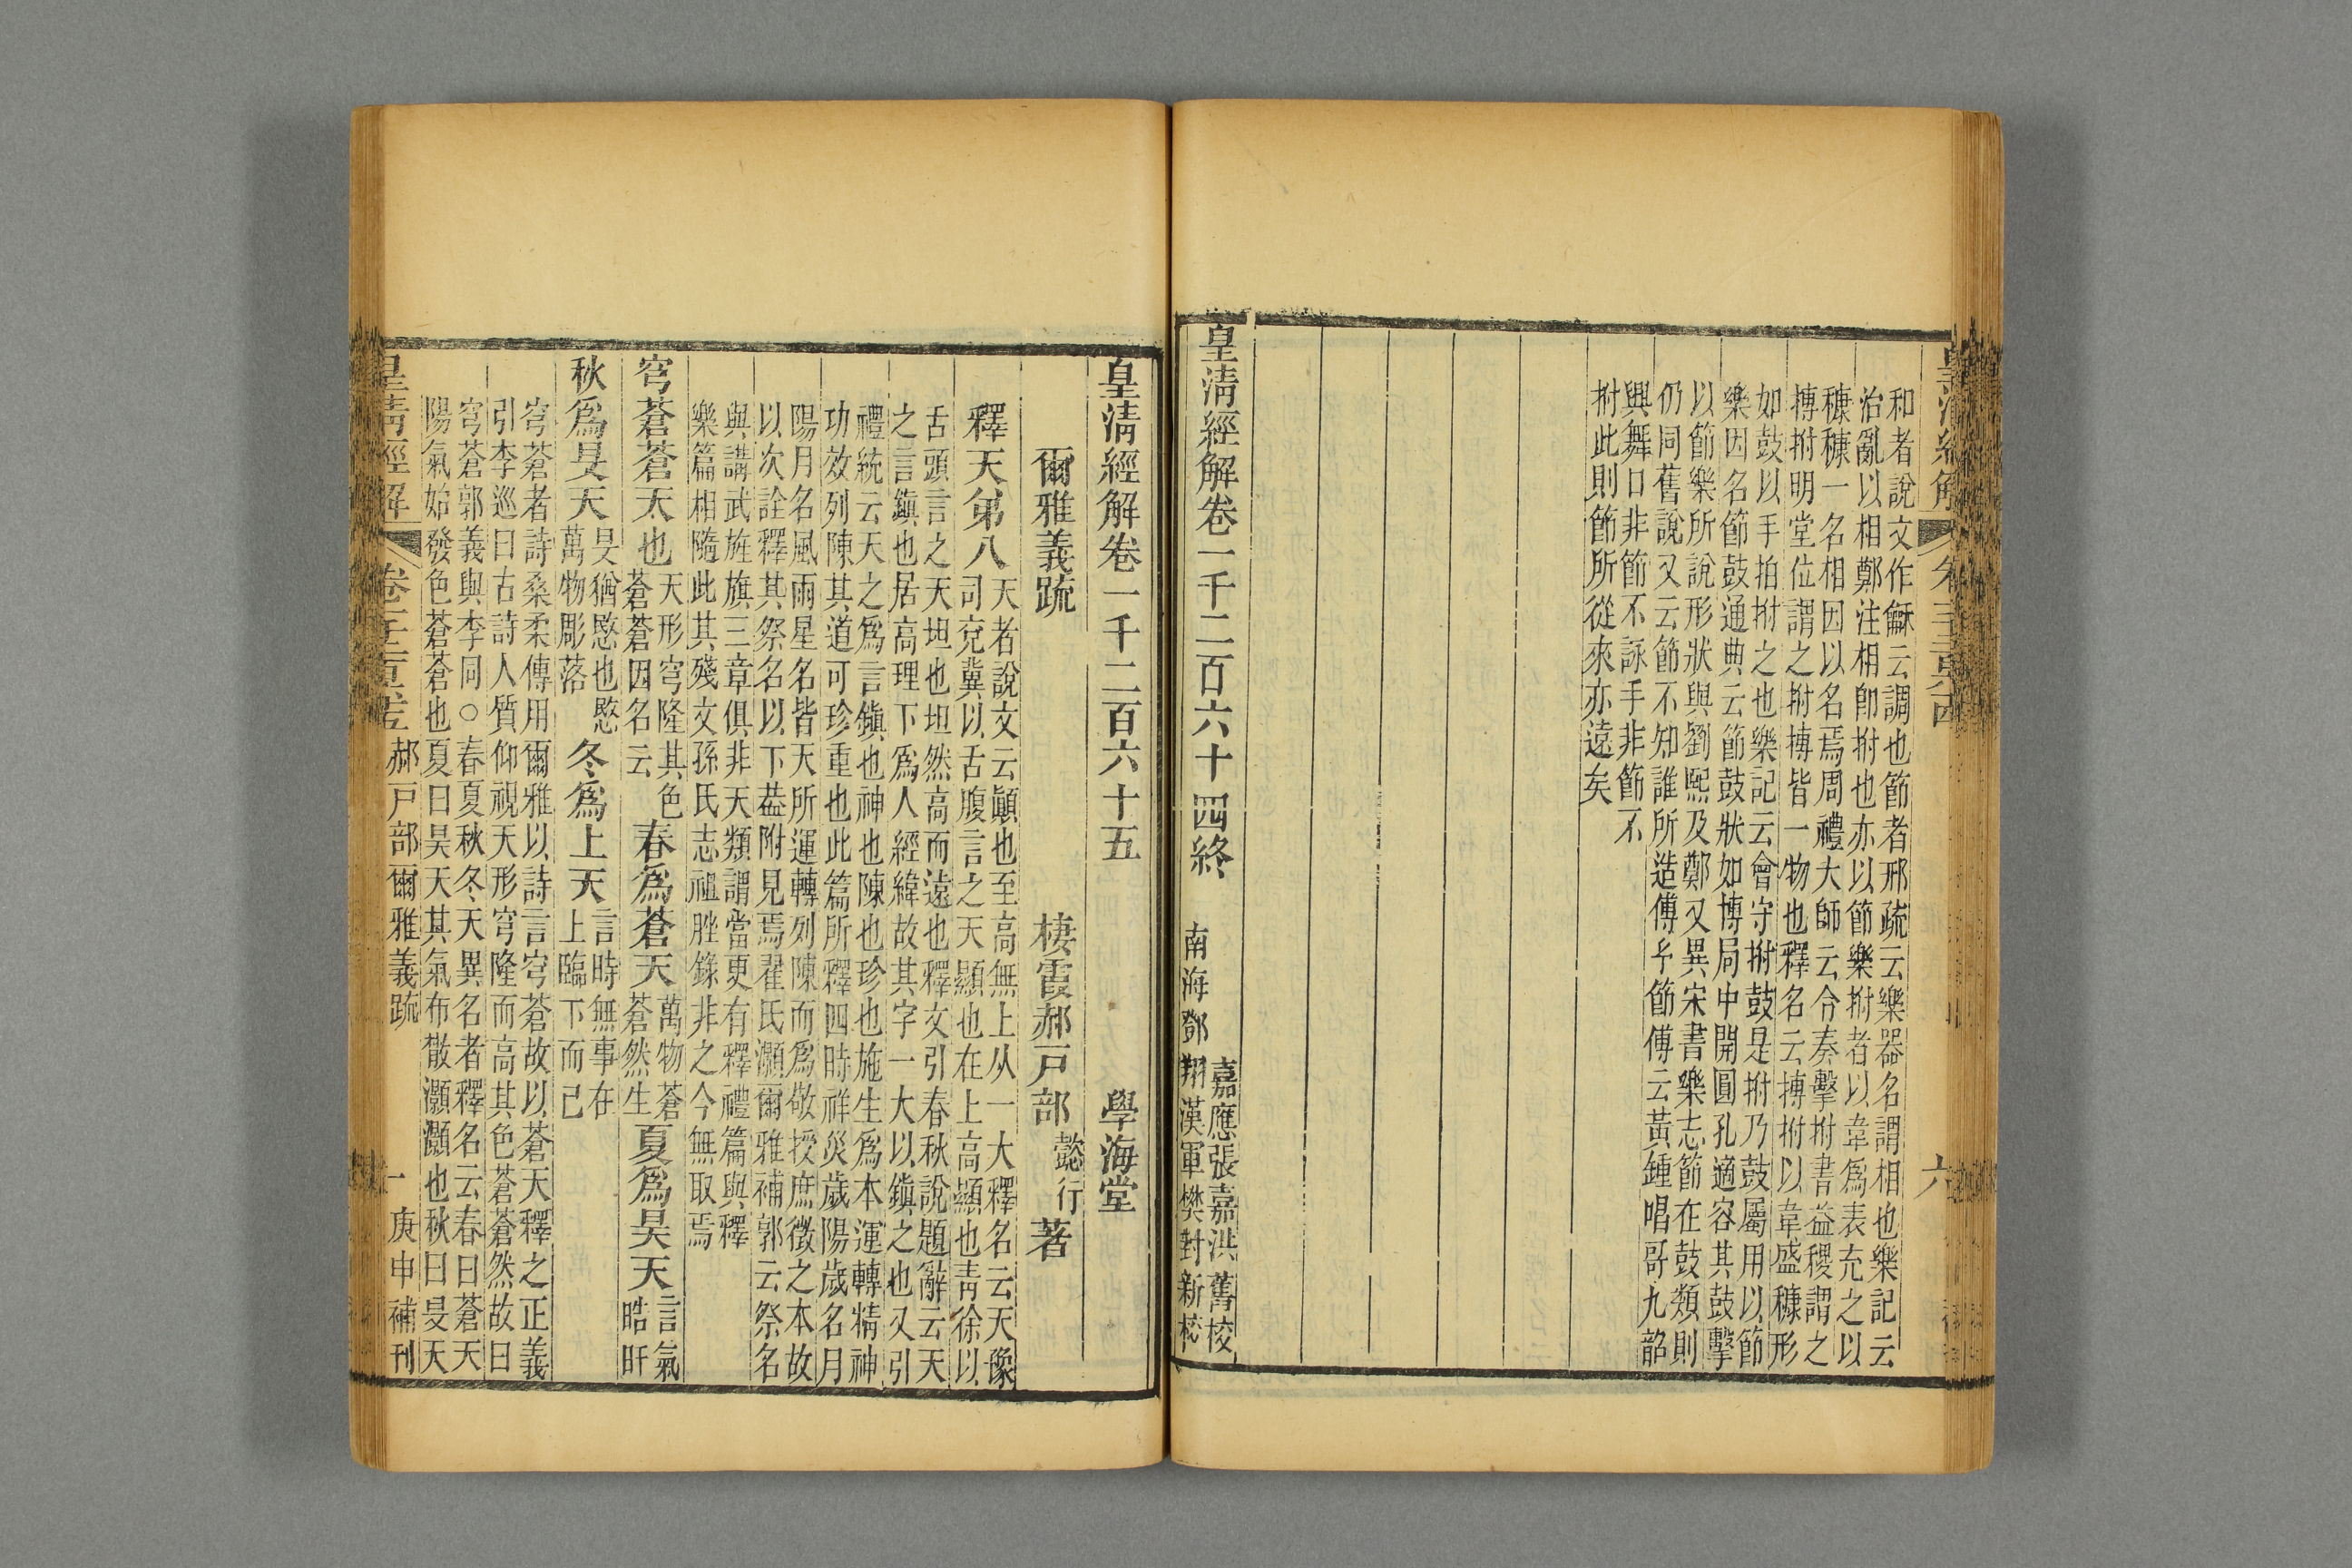 和者說文作龢云調也節者邢疏云樂器名謂相也樂記云
治亂以相鄭注相卽拊也亦以節樂拊者以韋爲表充之以
穅穅一名相因以名焉周禮大師云令奏擊拊書益稷謂之
搏拊明堂位謂之拊搏皆一物也釋名云搏拊以韋盛穅形
如鼓以手拍拊之也樂記云會守拊鼓是拊乃鼓屬用以節
樂因名節鼓通典云節鼓狀如博局中開圓孔適容其鼓擊
以節樂所說形狀與劉熙及鄭又異宋書樂志節在鼓類則
仍同舊說又云節不知誰所造傅乎節傅云黃鍾唱哥九韶
興舞口非節不詠手非節不
拊此則節所從來亦遠矣
皇淸經解卷一千二百六十四終
嘉應張嘉洪舊校
南海鄧翔漢軍樊封新校
皇淸經解卷一千二百六十五 學海堂
爾雅義疏 棲霞郝戸部懿行著
釋天弟八
天者說文云顚也至高無上从一大釋名云天豫
司兗冀以舌腹言之天顯也在上高顯也靑徐以
舌頭言之天坦也坦然高而遠也釋文引春秋說題辭云天
之言鎭也居高理下爲人經緯故其字一大以鎭之也又引
禮統云天之爲言鎭也神也陳也珍也施生爲本運轉精神
功效列陳其道可珍重也此篇所釋四時祥災歲陽歲名月
陽月名風雨星名皆天所運轉列陳而爲敬授庶徵之本故
以次詮釋其祭名以下葢附見焉翟氏灝爾雅補郭云祭名
與講武旌旗三章俱非天類謂當更有釋禮篇與釋
樂篇相隨此其殘文孫氏志祖脞錄非之今無取焉
穹蒼蒼天也
天形穹隆其色
蒼蒼因名云
春爲蒼天
萬物蒼
蒼然生
夏爲昊天
言氣
晧旰
秋爲旻天
旻猶愍也愍
萬物彫落
冬爲上天
言時無事在
上臨下而已
穹蒼者詩桑柔傳用爾雅以詩言穹蒼故以蒼天釋之正義
引李巡曰古詩人質仰視天形穹隆而高其色蒼蒼然故曰
穹蒼郭義與李同○春夏秋冬天異名者釋名云春曰蒼天
陽氣始發色蒼蒼也夏曰昊天其氣布散灝灝也秋曰旻天
皇淸經解 郝戸部爾雅義疏 一 庚申補刊